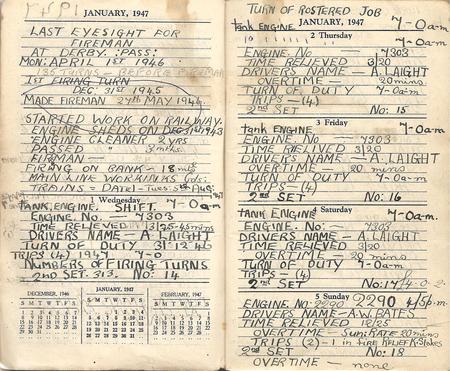 JANUARY, 1947
LAST EYESIGHT FOR
FIREMAN
AT DERBY. PASS:
MON: APRIL 1ST 1946
35 TURNS BEFORE FIREMAN
1ST FIRING TURN
DEC. 31ST 1945
MADE FIREMAN 27th MAY 1946
STARTED WORK ON RAILWAY.
ENGINE SHEDS ON DEC 31st 1943
ENGINE CLEANER 2 yrs
PASSED " 3 mths.
FIREMAN —
FIRING ON BANK — 18 mths
MAIN LINE WORKINGS
TRAINS = DATE
1 Wednesday
TANK ENGINE. SHIFT 7-0a-m
ENGINE. No. — 7303
TIME RELIEVED 3/25-45mins
DRIVERS NAME — A LAIGHT
TURN OF DUTY 31.12.46
TRIPS (4) 1947 7-0
NUMBERS OF FIRING TURNS
2ND SET. 313. No: 14
DECEMBER, 1946 JANUARY, 1947 FEBRUARY, 1947
TURN OF ROSTERED JOB
JANUARY, 1947
tank ENGINE 7-0a-m
2 Thursday
ENGINE. No — 7303
TIME RELIEVED 3/20
DRIVERS NAME — A. LAIGHT
OVERTIME — 20mins
TURN OF DUTY 7-0a-m
TRIPS — (4)
2nd SET No: 15
3 Friday
tank ENGINE 7-0a-m
ENGINE. No — 7303
TIME RELIVED 3/20
DRIVERS NAME — A. LAIGHT
OVERTIME — 20 mins
TURN OF DUTY 7-0a-m
TRIPS — (4)
2nd SET No: 16
4 Saturday
tANK ENGINE 7-0a-m.
ENGINE. No: — 7303
DRIVERS NAME — A LAIGHT
TIME RELIEVED 3/20
OVERTIME — 20 mins
TURN OF DUTY 7-0a-m
TRIPS — (4)
2nd SET No: 17
5 Sunday
ENGINE. NO — 2290 2290 4/5p.m.
DRIVERS NAME — A.W. BATES
TIME RELIEVED 12/25
OVERTIME — Sun: RATE 20mins
TRIPS (2) — 1 in fire RELIEF
2nd SET No: 18
OVERTIME — none